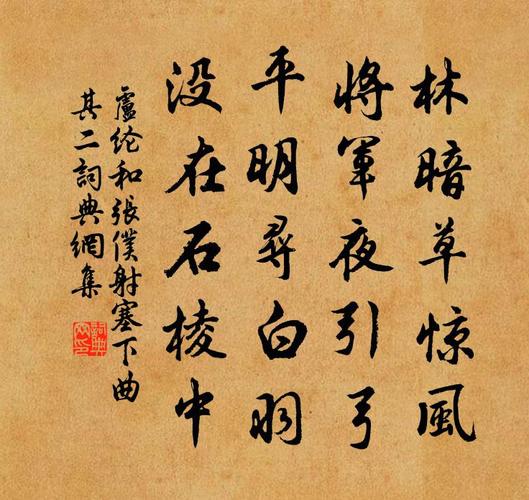 林暗草惊風
將軍夜引弓
平明尋白羽
没在石棱中
盧纶和張僕射塞下曲
其二詞典網集